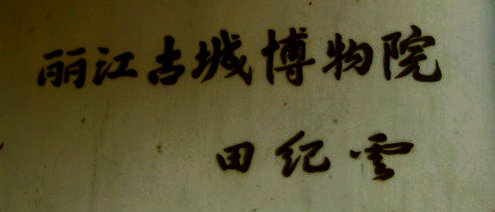 丽江古城博物院
田纪雲